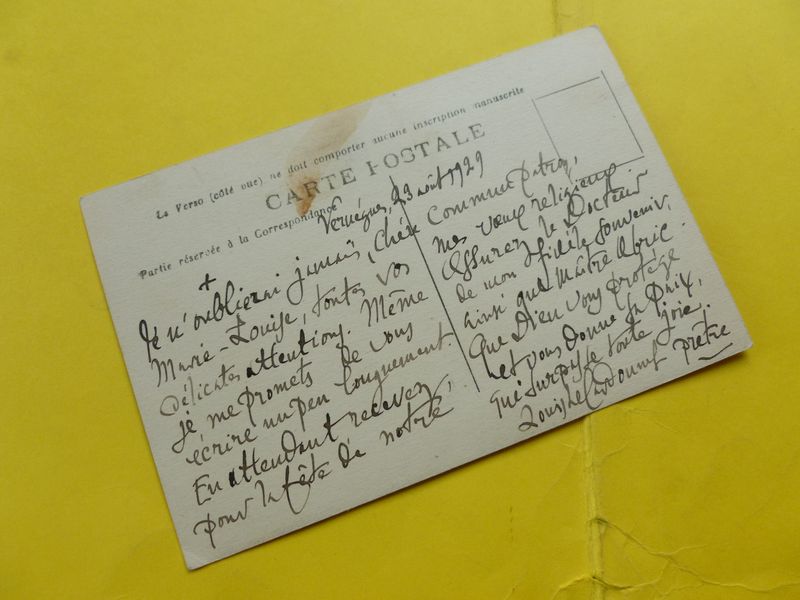 Le Verso (côté vue) ne doit comporter aucune inscription manuscrite
CARTE POSTALE
Partie réservée à la Correspondance
Vernègues, 23 août 1929
+
Je n'oublierai jamais, Chère
Marie-Louise, toutes vos
délicates attentions. Même
je me promets de vous
écrire un peu longuement.
En attendant recevez,
pour la fête de notre
Commun patron,
mes vœux religieux
Assurez le Docteur
de mon fidèle souvenir,
ainsi que Maître
Que Dieu vous protège
et vous donne sa Paix,
qui surpasse toute joie.
Louis le Cardonnel prêtre